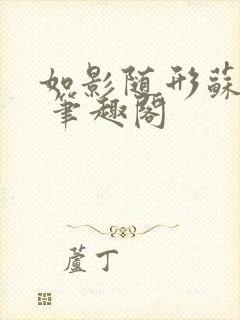 如影随形蘇
筆趣閣
蘆丁